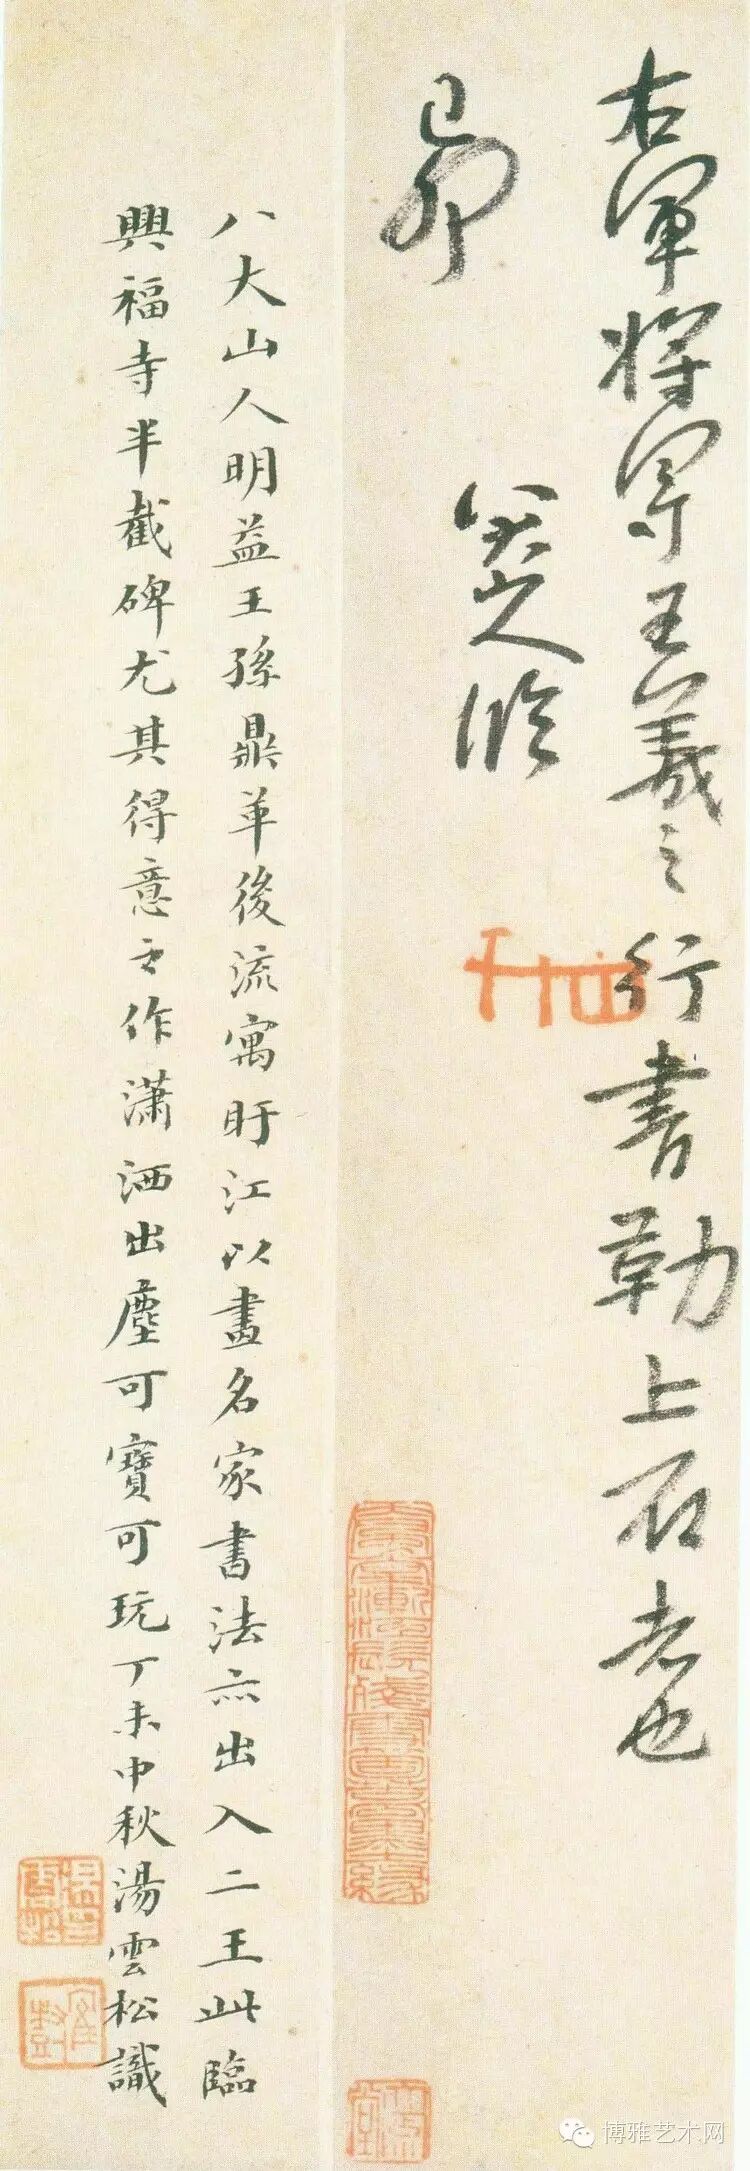 右軍將軍王羲之行書勒上石者也
己卯
八大山人臨
八大山人明益王孫鼎革後流寓盱江以畫名家書法亦出入二王此臨
興福寺半截碑尤其得意之作瀟洒出塵可寶可玩丁未中秋湯雲松識
博雅艺术网